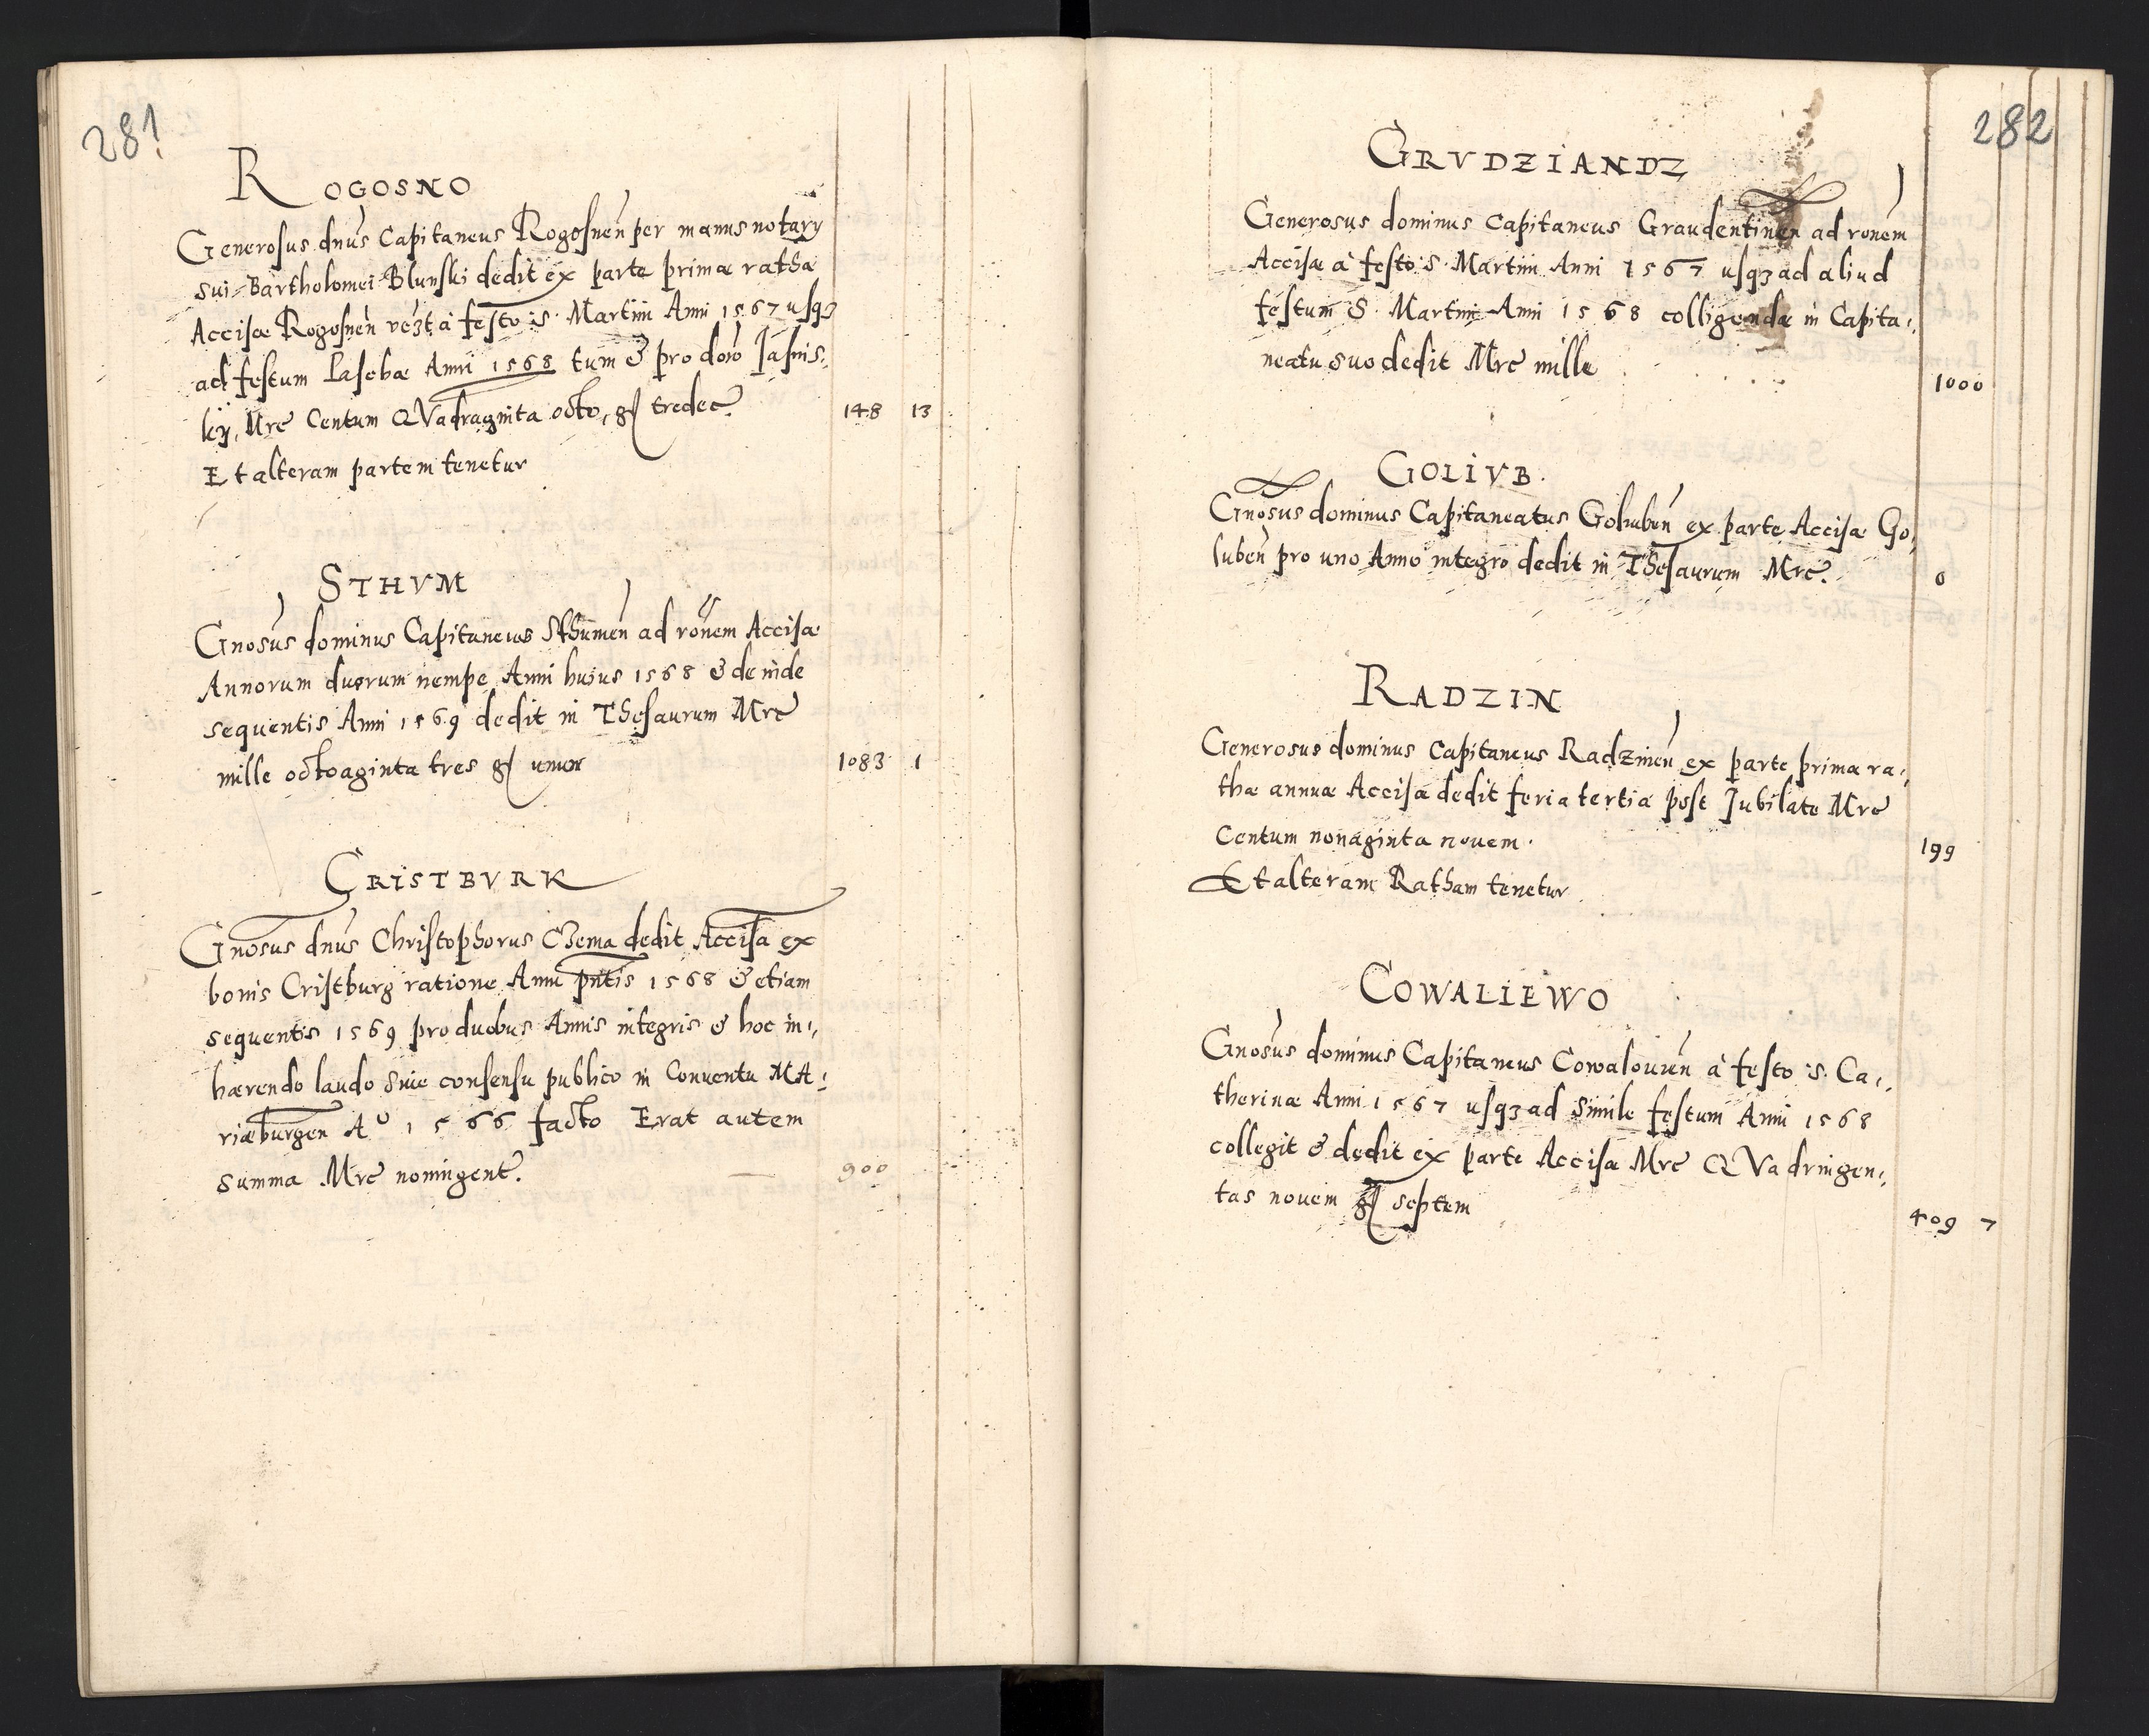 281
ROGOSNO
Generosus dnus Capitaneus Rogosnen per manus notary
sui Bartholomei Blunski dedit ex parte primæ rathæ
Accisæ Rogosnen a festo S. Martini Anni 1567 usqȝ
ad festum Paschæ Anni 1568 tum & pro domo Jasnis,,
kij, Mrc Centum QVadraginta octo, g tredec. 148 13
Et alteram partem tenetur
STHVM
Gnosus dominus Capitaneus Sthumen ad ronem Accisæ
Annorum duorum nempe Anni huius 1568 & deinde
sequentis Anni 1569 dedit in Thesaurum Mrc
mille octoaginta tres g unum 1083 1
CRISTBVRK
Gnosus dnus Christophorus Czema dedit Accisa ex
bonis Cristburg ratione Anni pntis 1568 & etiam
sequentis 1569 pro duobus Annis integris & hoc in,,
hærendo laudo sive consensu publico in Conventu MA,,
riæburgen Aº 1566 facto Erat autem
summa Mrc noningent. 900
282
GRVDZIANDZ
Generosus dominus Capitaneus Graudentinen ad ronem
Accisæ à festo S. Martini Anni 1567 usqȝ ad aliud
festum S. Martini Anni 1568 colligendæ in Capita,,
neatu suo dedit Mrc mille 1000
GOLIVB.
Gnosus dominus Capitaneatus Goluben ex parte Accisæ Go,,
luben pro uno Anno integro dedit in Thesaurum Mrc. 0
RADZIN
Generosus dominus Capitaneus Radzinen ex parte primæ ra,,
thæ annuæ Accisæ dedit feria tertia post Jubilate Mrc
Centum nonaginta novem. 199
Et alteram Ratham tenetur
COWALIEWO
Gnosus dominus Capitaneus Cowalouien à festo S. Ca,,
therinæ Anni 1567 usqȝ ad simile festum Anni 1568
collegit & dedit ex parte Accisæ Mrc QVadringen,,
tas novem g septem 409 7